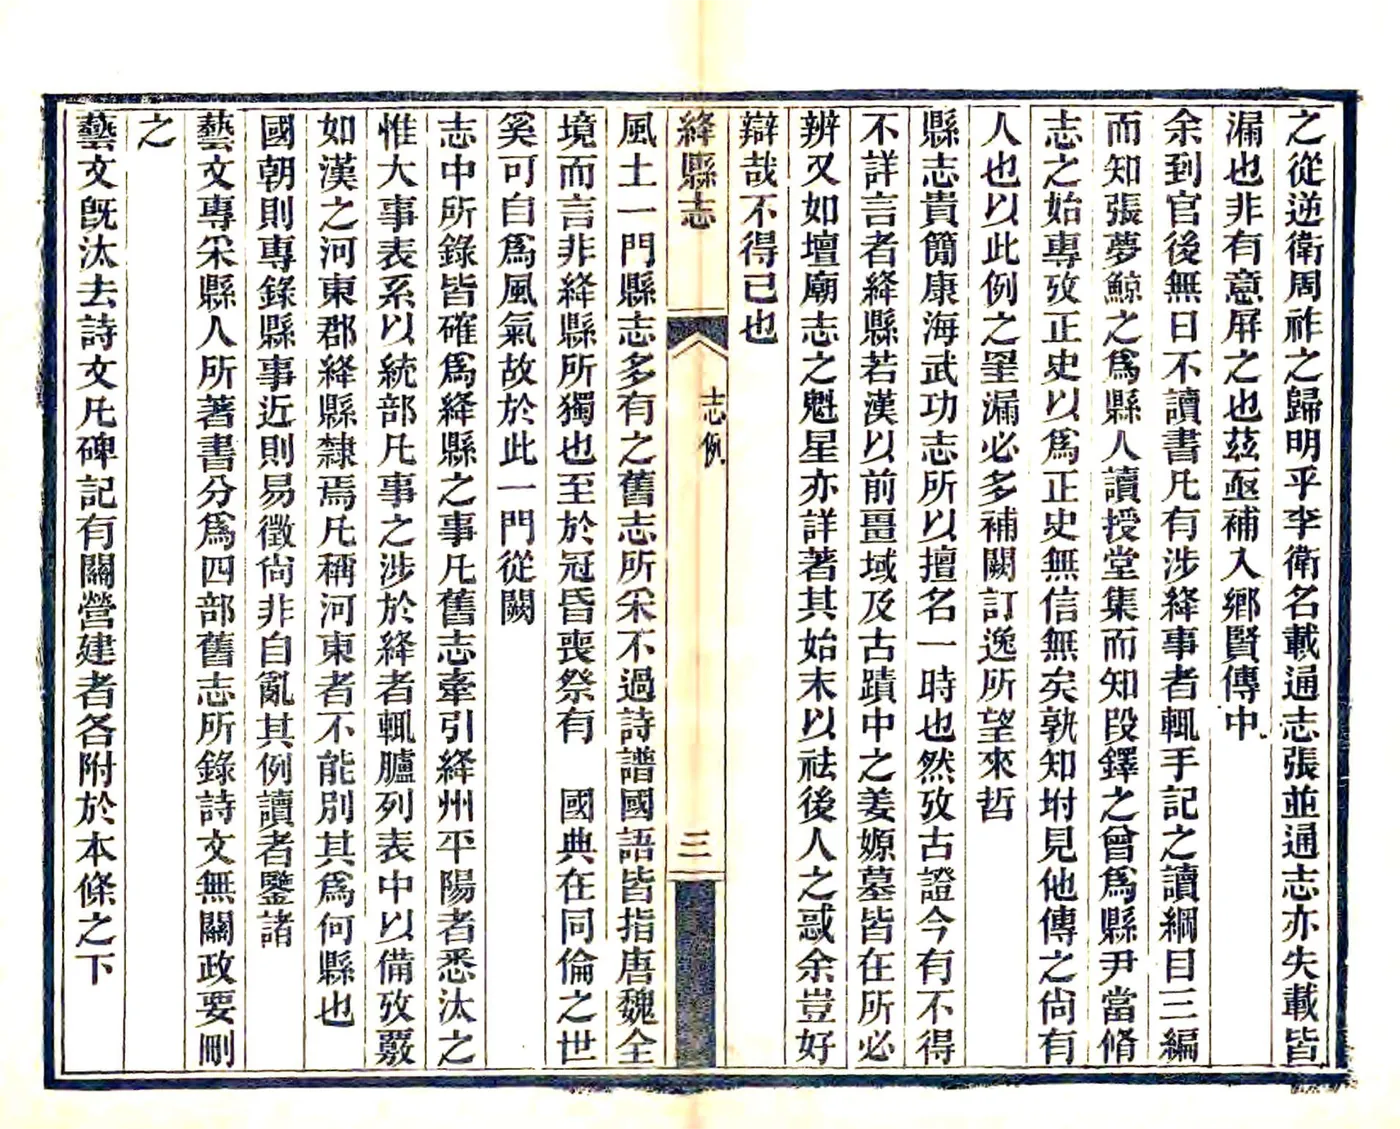 之從逆衛周祚之歸明乎李衛名載通志張並通志亦失載皆
漏也非有意屏之也茲亟補入鄉賢傳中
余到官後無日不讀書凡有涉絳事者輒手記之讀綱目三編
而知張夢鯨之爲縣人讀授堂集而知段鐸之曾爲縣尹當脩
志之始專攷正史以爲正史無信無矣孰知坿見他傳之尙有
人也以此例之罣漏必多補闕訂逸所望來哲
縣志貴簡康海武功志所以擅名一時也然攷古證今有不得
不詳言者絳縣若漢以前畺域及古蹟中之姜嫄墓皆在所必
辨又如壇廟志之魁星亦詳著其始末以祛後人之惑余豈好
辯哉不得已也
絳縣志
志例
三
風土一門縣志多有之舊志所采不過詩譜國語皆指唐魏全
境而言非絳縣所獨也至於冠昏喪祭有　國典在同倫之世
奚可自爲風氣故於此一門從闕
志中所錄皆確爲絳縣之事凡舊志牽引絳州平陽者悉汰之
惟大事表系以統部凡事之涉於絳者輒臚列表中以備攷覈
如漢之河東郡絳縣隸焉凡稱河東者不能別其爲何縣也
國朝則專錄縣事近則易徵尙非自亂其例讀者鑒諸
藝文專采縣人所著書分爲四部舊志所錄詩文無關政要刪
之
藝文旣汰去詩文凡碑記有關營建者各附於本條之下